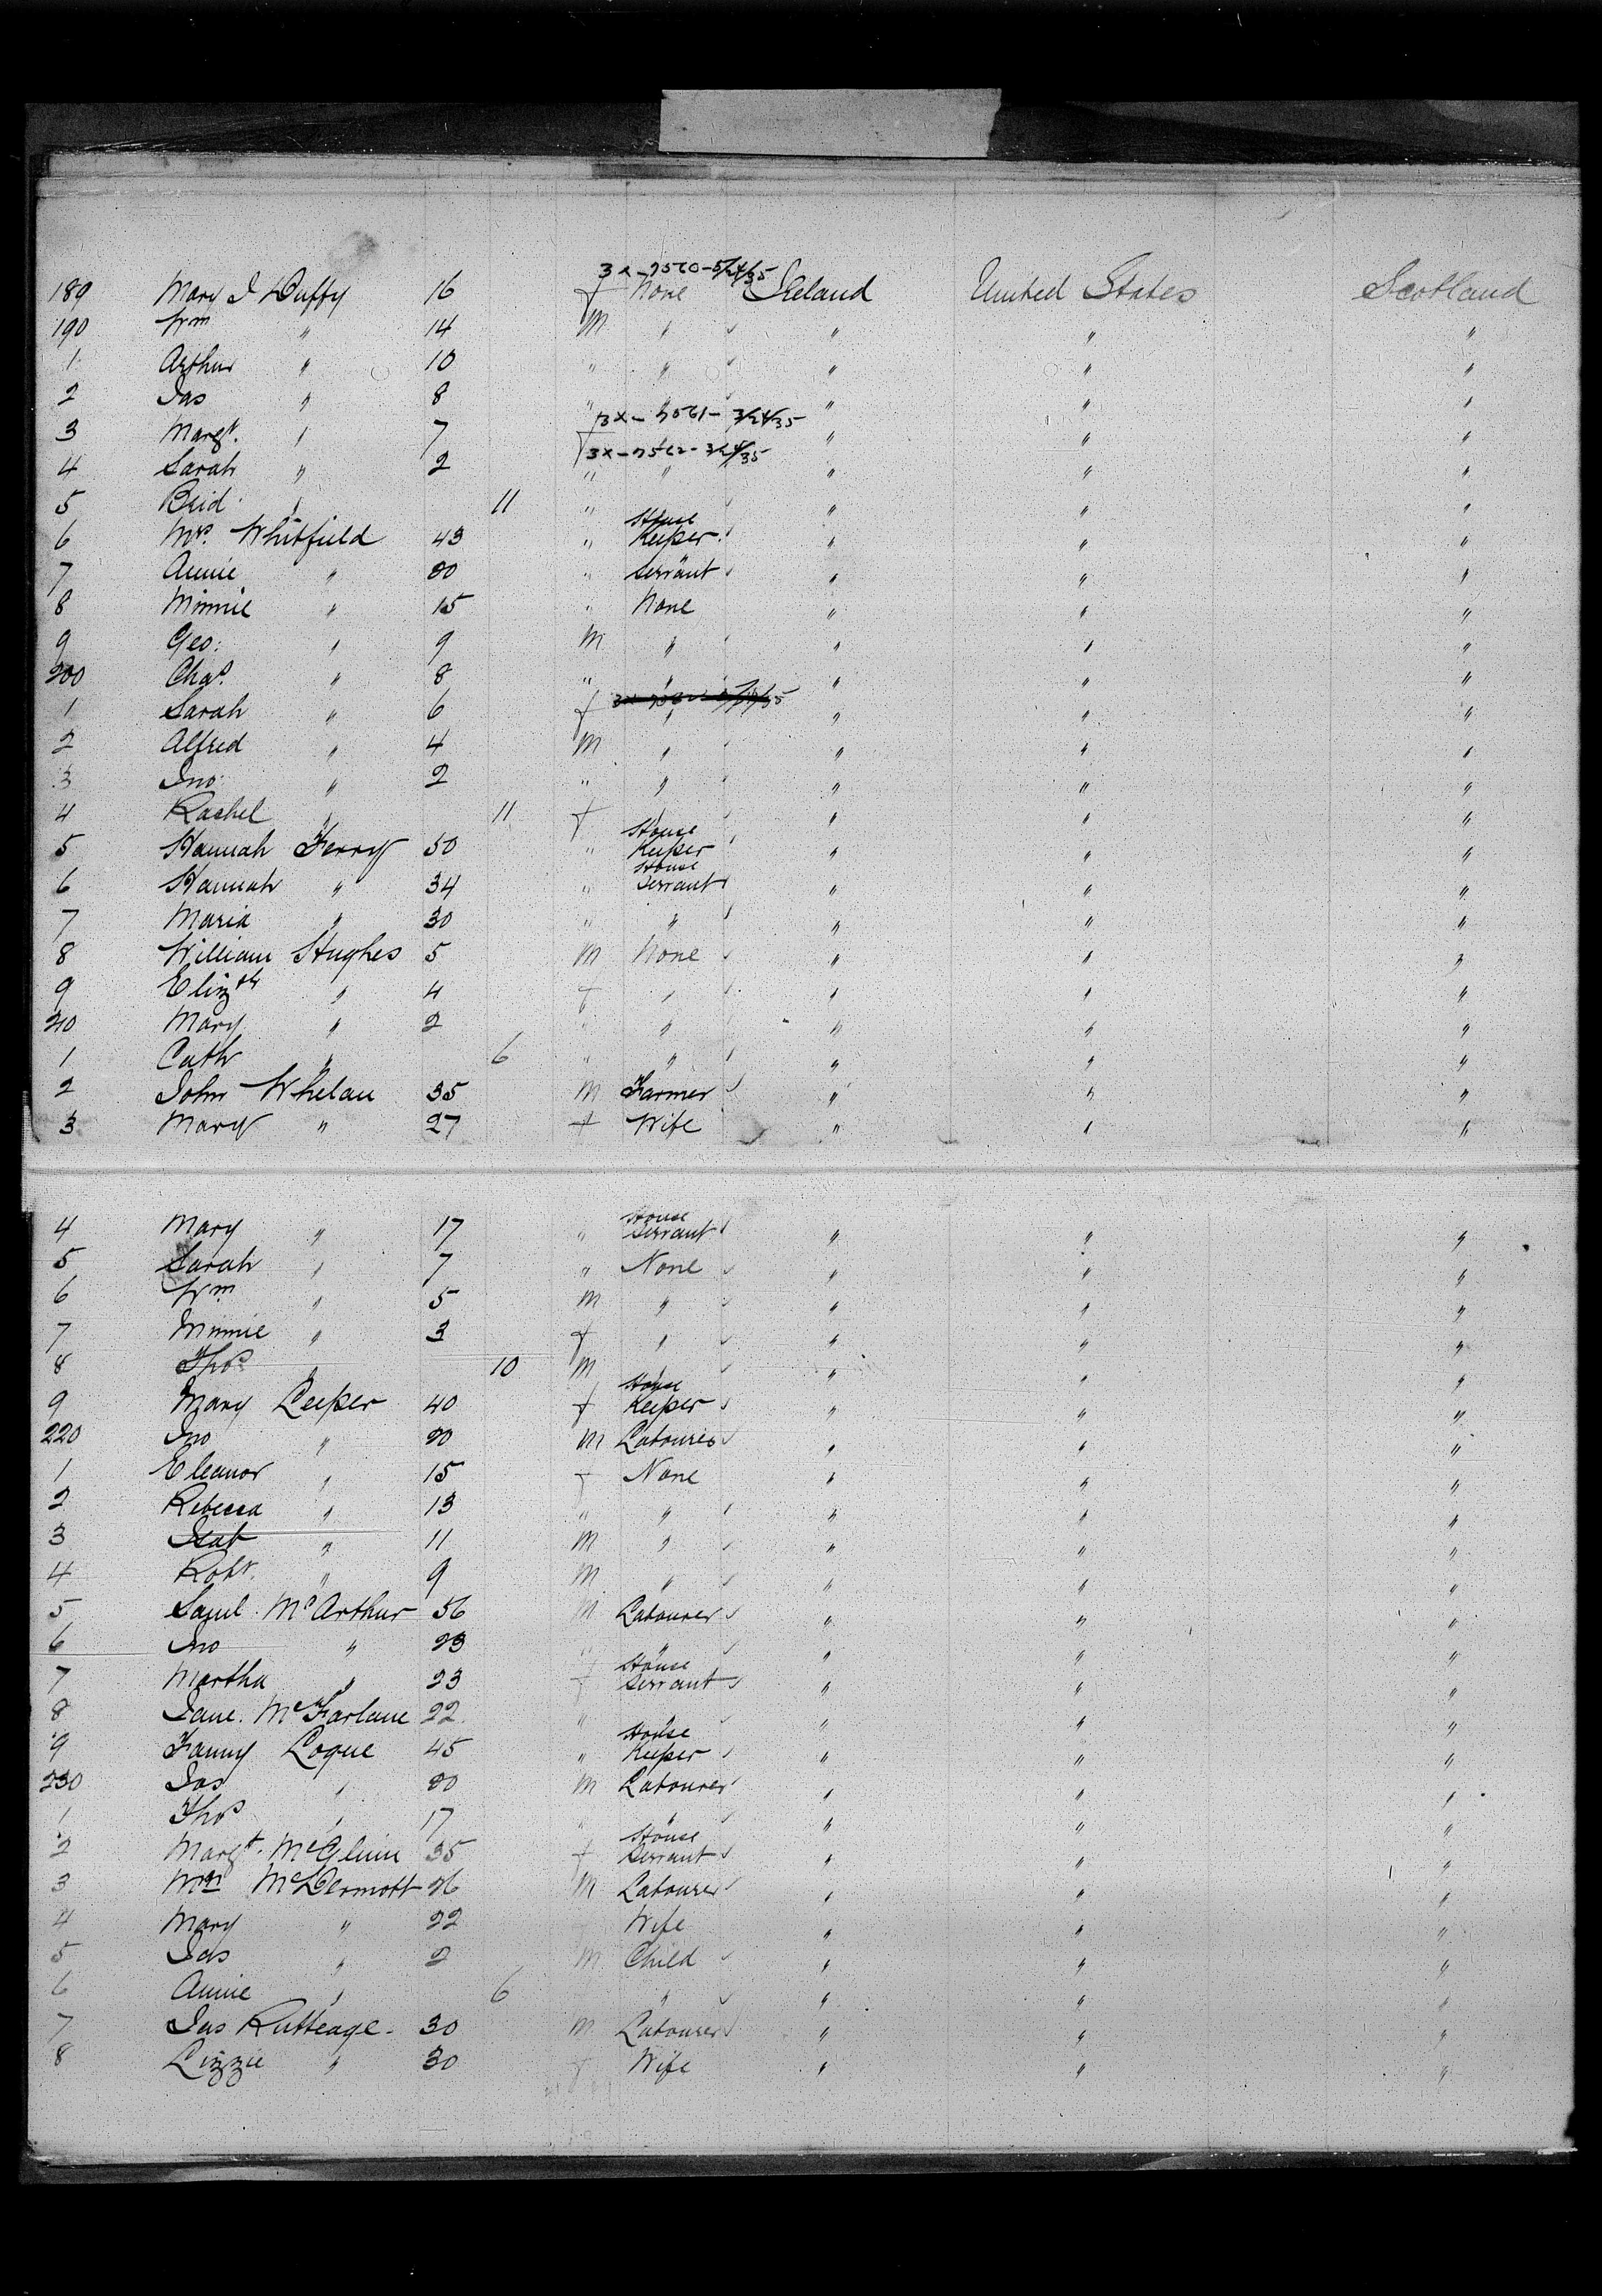 189 Mary J Duffy 16 f 3x-7560-5/24/35 None Ireland United States Scotland
190 Wm " 14 m " " " "
1 Arthur " 10 " " " " "
2 Jas " 8 " " " " "
3 Margt. " 7 f 3x-7561-3/24/35 " " "
4 Sarah " 2 " 3x-7562-3/24/35 " " " "
5 Brid. " 11 " " " "
6 Mrs. Whitfield 43 " House Keeper " " "
7 Annie " 20 " Servant " " "
8 Minnie " 15 " None " " "
9 Geo: " 9 m " " " "
200 Chas. " 8 " " " " "
1 Sarah " 6 f " " " "
2 Alfred " 4 m " " " "
3 Jno. " 2 " " " " "
4 Rachel " 11 f " " "
5 Hannah Ferry 50 " House Keeper " " "
6 Hannah " 34 " House Servant " " "
7 Maria " 30 " " " " "
8 William Hughes 5 m None " " "
9 Elizth " 4 f " " " "
210 Mary " 2 " " " " "
1 Cath " 6 " " " " "
2 John Whelan 35 m Farmer " " "
3 Mary " 27 f Wife " " "
4 Mary " 17 " House Servant " " "
5 Sarah " 7 " None " " "
6 Wm " 5 m " " " "
7 Minnie " 3 f " " " "
8 Thos " 10 m " " " "
9 Mary Leeper 40 f House Keeper " " "
220 Jno " 20 m Labourer " " "
1 Eleanor " 15 f None " " "
2 Rebecca " 13 " " " " "
3 " 11 m " " " "
4 Robt. " 9 m " " " "
5 Saml. McArthur 56 m Labourer " " "
6 Jno " 23 " " " " "
7 Martha " 23 f House Servant " " "
8 Jane. McFarlane 22 " " " " "
9 Fanny Logue 45 " House Keeper " " "
230 Jas " 20 m Labourer " " "
1 Thos " 17 " " " " "
2 Margt. McGlinn 35 f House Servant " " "
3 Wm McDermott 26 m Labourer " " "
4 Mary " 22 Wife " " "
5 Jas " 2 m Child " " "
6 Annie " 6 " " " "
7 Jas Rutteage 30 m Labourer " " "
8 Lizzie " 30 f Wife " " "